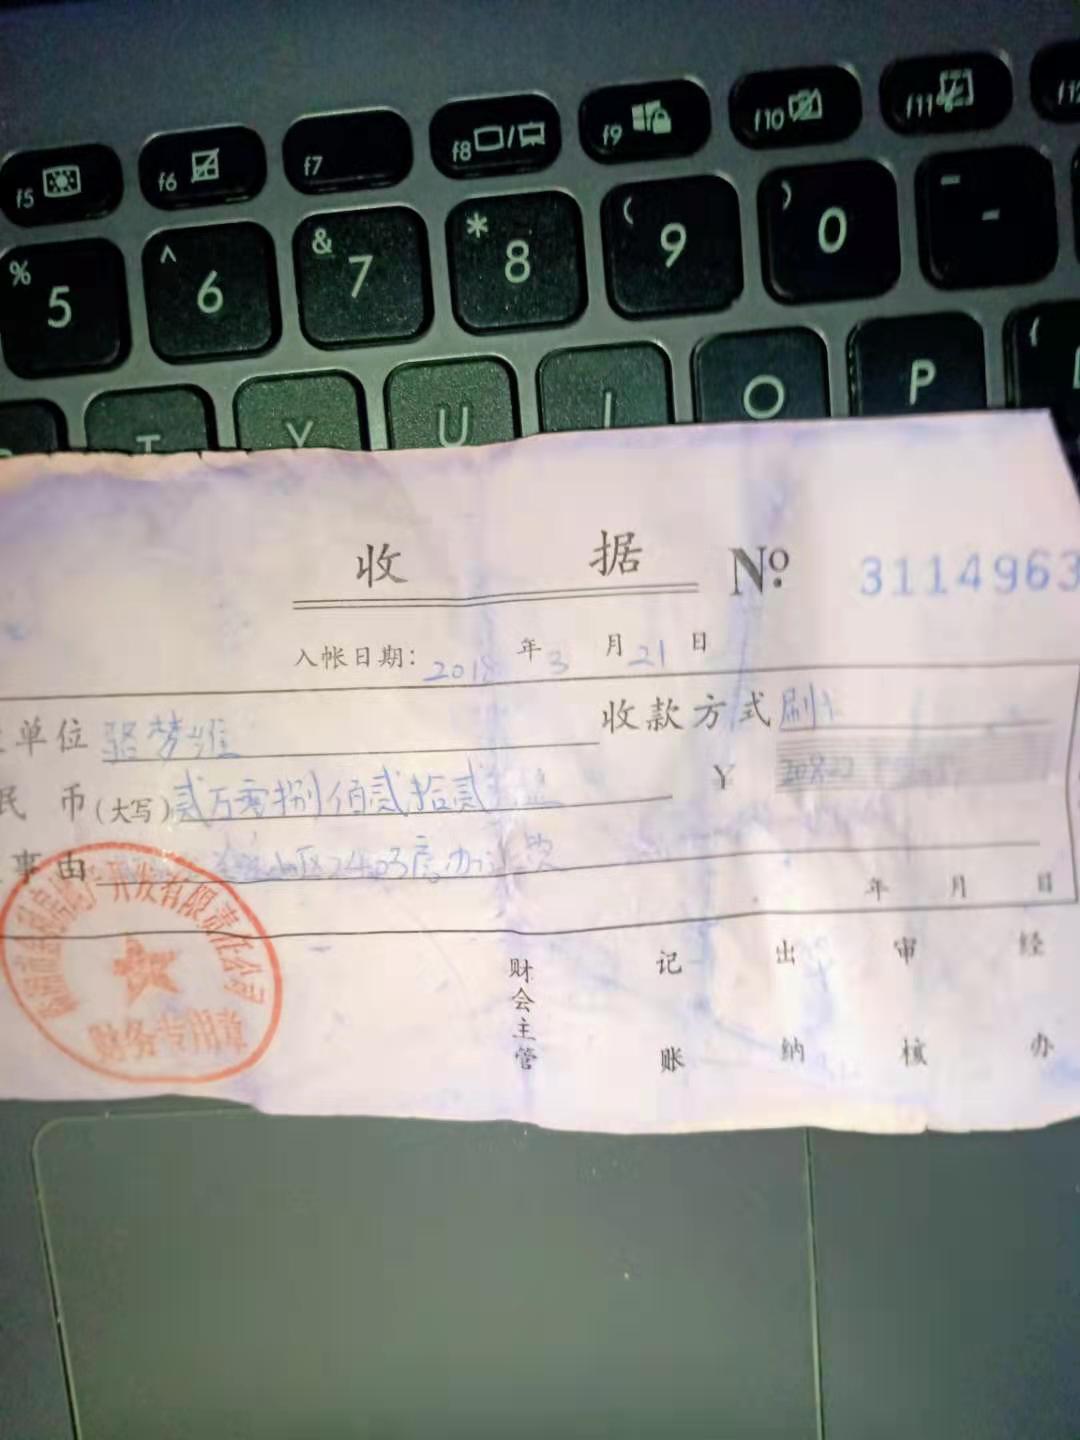 f5 f6 f7 f8 f9 f10 f11 f12
% 5 ^ 6 & 7 * 8 ( 9 ) 0 -
T Y U I O P {
收 据 № 3114963
入帐日期: 2018 年 3 月 21 日
单位 骆梦维 收款方式 刷卡
民 币(大写) 贰万零捌佰贰拾贰 ¥ 20822
事由 区2403房办证费
年 月 日
开发有限责任公司
财务专用章
财会主管 记账 出纳 审核 经办